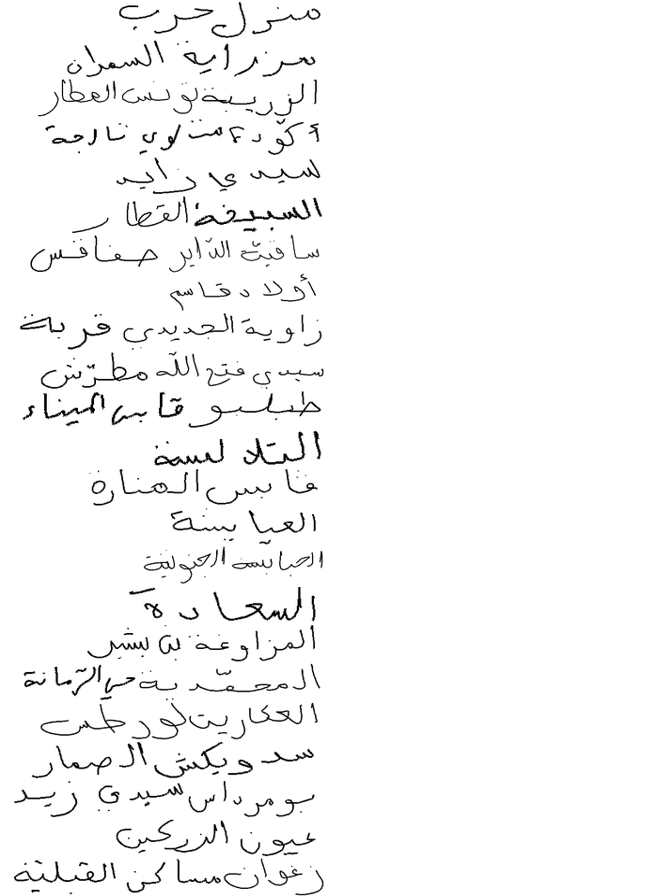 منزل حرب
مرزاية السمران
الزريبة تونس العطار
أكودة متلوي نارجة
سيدي زايد
السبيخة القطار
ساقية الداير صفاقس
أولاد قاسم
زاوية الجديدي قربة
سيدي فتح الله مطرش
طبلبو قابس الميناء
التلالسة
قابس المنارة
العيايشة
الحبايسة الجنوبية
السعادة
المزاوغة بن بشير
المحمدية حي الرمانة
العكارين تورطس
سدويكش الصمار
بومرداس سيدي زيد
عيون الزركين
زغوان مساكن القبلية